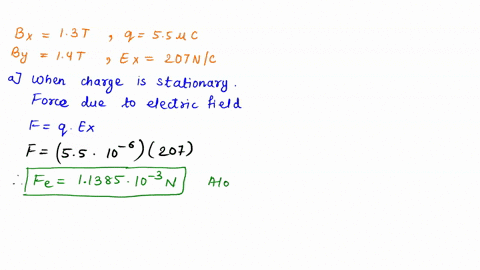 Bx = 1.3 T , q = 5.5 μC
By = 1.4 T , Ex = 207 N/C
a] when charge is stationary.
Force due to electric field
F = q. Ex
F = (5.5 · 10⁻⁶)(207)
∴ Fe = 1.1385 · 10⁻³ N Alo